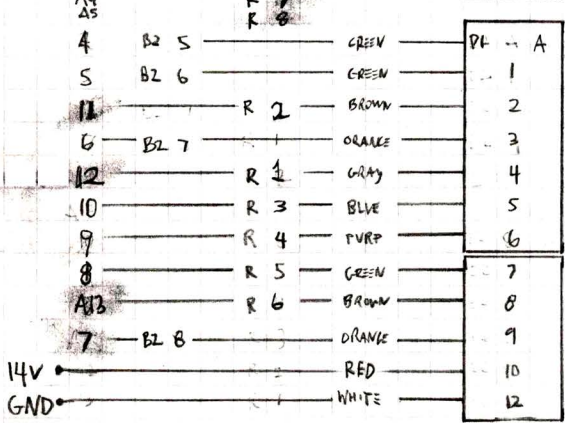 A5 R 8
4 B2 5 GREEN PA -- A
5 B2 6 GREEN 1
11 R 2 BROWN 2
6 B2 7 ORANGE 3
12 R 1 GRAY 4
10 R 3 BLUE 5
9 R 4 PURP 6
8 R 5 GREEN 7
A13 R 6 BROWN 8
7 B2 8 ORANGE 9
14V RED 10
GND WHITE 12